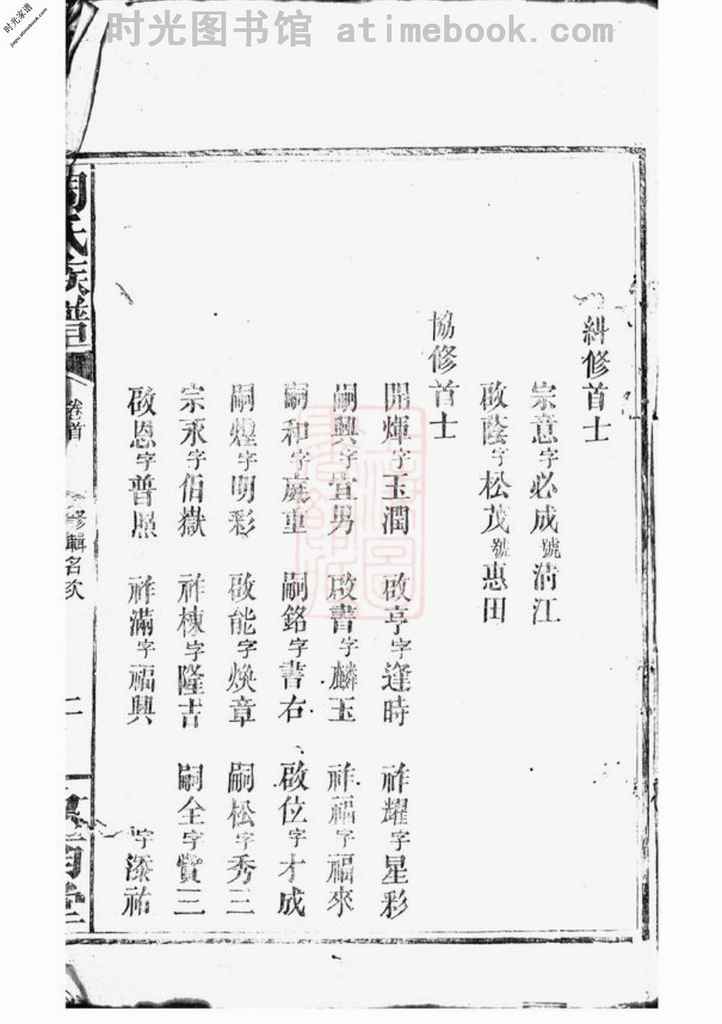 时光图书馆 atimebook.com
时光家谱
jiapu.atimebook.com
糾修首士
宗意字必成號淸江
啟蔭字松茂號惠田
協修首士
開煇字玉潤 啟亨字逢時 祚耀字星彩
嗣興字宜男 啟書字麟玉 祚福字福來
嗣和字庭重 嗣銘字書右 啟位字才成
嗣煌字明彩 啟能字煥章 嗣松字秀三
宗永字伯嶽 祚棟字隆吉 嗣全字贊三
啟恩字普照 祚滿字福興 字添祐
周氏族譜
卷首
修輯名次
二
堂